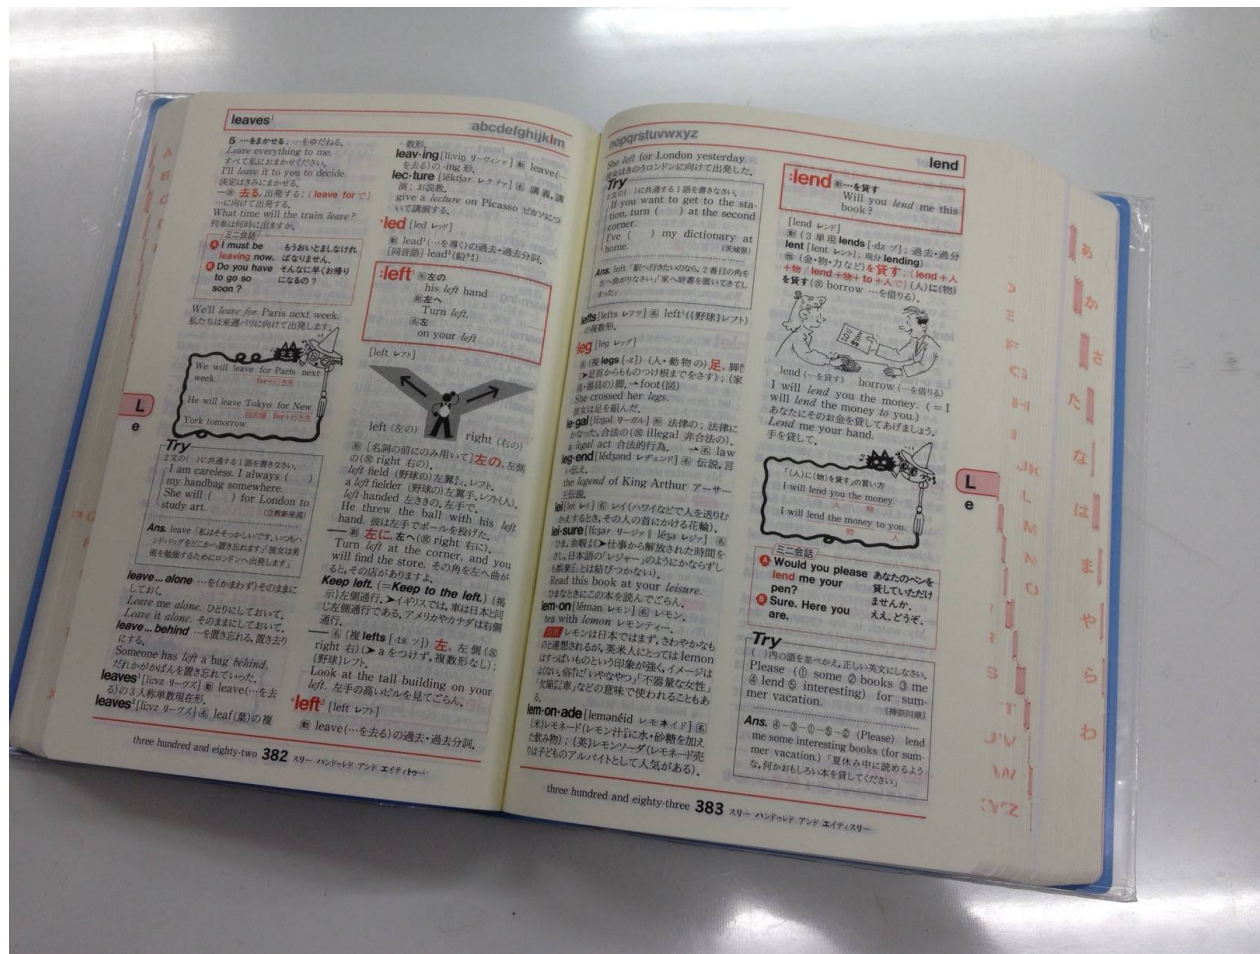 leaves¹
abcdefghijklm
5 …をまかせる; …をゆだねる.
Leave everything to me.
すべて私におまかせください.
I'll leave it to you to decide.
決定はきみにまかせる.
去る, 出発する; (leave for で)
…に向けて出発する.
What time will the train leave?
列車は何時に出ますか.
ミニ会話
A I must be
leaving now.
もうおいとましなけれ
ばなりません.
B Do you have
to go so
soon?
そんなに早くお帰り
になるの?
We'll leave for Paris next week.
私たちは来週パリに向けて出発します.
We will leave for Paris next
week.
for+行き先
He will leave Tokyo for New
for+行き先
York tomorrow.
Try
2文の( )に共通する1語を書きなさい.
I am careless. I always ( )
my handbag somewhere.
She will ( ) for London to
study art.
Ans. leave「私はそそっかしいです. いつもハ
ンドバッグをどこかへ置き忘れます」「彼女は美
術を勉強するためにロンドンへ出発します」
leave ... alone …を(かまわず)そのままに
しておく.
Leave me alone. ひとりにしておいて.
Leave it alone. そのままにしておいて.
leave ... behind …を置き忘れる, 置き去り
にする.
Someone has left a bag behind.
だれかがかばんを置き忘れていった.
leaves¹ [li:vz リーヴズ] 動 leave(…を去
る)の3人称単数現在形.
leaves² [li:vz リーヴズ] 名 leaf(葉)の複
数形.
leav·ing [li:viŋ リーヴィング] 動 leave(…
を去る)の-ing形.
lec·ture [léktʃər レクチァ] 名 講義, 講
演; お説教.
give a lecture on Picasso ピカソにつ
いて講演する.
led [led レッド]
動 lead¹(…を導く)の過去・過去分詞.
[同音語] lead²(鉛)
left¹
形 左の
his left hand
副 左へ
Turn left.
名 左
on your left
[left レフト]
left (左の)
right (右の)
形 [名詞の前にのみ用いて]左の, 左側
の(反 right 右の).
left field (野球の)左翼, レフト.
a left fielder (野球の)左翼手, レフト(人).
left-handed 左ききの, 左手で.
He threw the ball with his left
hand. 彼は左手でボールを投げた.
副 左に, 左へ(反 right 右に).
Turn left at the corner, and you
will find the store. その角を左へ曲が
ると, その店がありますよ.
Keep left. (=Keep to the left.) (掲
示)左側通行. ➤イギリスでは, 車は日本と同
じ左側通行である. アメリカやカナダは右側
通行.
名 (複 lefts [-ts ッ]) 左, 左側(反
right 右)(➤ aをつけず, 複数形なし);
(野球)レフト.
Look at the tall building on your
left. 左手の高いビルを見てごらん.
left² [left レフト]
動 leave(…を去る)の過去・過去分詞.
L
e
three hundred and eighty-two 382 スリー ハンドゥレド アンド エイティトゥー
nopqrstuvwxyz
lend
She left for London yesterday.
彼女はきのうロンドンに向けて出発した.
Try
2文の( )に共通する1語を書きなさい.
If you want to get to the sta-
tion, turn ( ) at the second
corner.
I've ( ) my dictionary at
home.
(茨城県)
Ans. left「駅へ行きたいのなら, 2番目の角を
左へ曲がりなさい」「家へ辞書を置いてきてし
まった」
lefts [lefts レフツ] 名 left¹((野球)レフト)
の複数形.
leg [leg レッグ]
名 (複 legs [-z]) (人・動物の)足, 脚
(➤足首からもものつけ根までをさす); (家
具・器具の)脚. →foot(図)
She crossed her legs.
彼女は足を組んだ.
le·gal [lí:gəl リーガル] 形 法律の; 法律に
かなった, 合法の(反 illegal 非合法の).
a legal act 合法的行為. →名 law
leg·end [lédʒənd レヂェンド] 名 伝説, 言
い伝え.
the legend of King Arthur アーサー
王伝説.
lei [lei レイ] 名 レイ(ハワイなどで人を送りむ
かえするとき, その人の首にかける花輪).
lei·sure [lí:ʒər リージァ ‖ léʒə レジァ] 名
ひま, 余暇(➤仕事から解放された時間を
さし, 日本語の「レジャー」のようにかならずし
も娯楽とは結びつかない).
Read this book at your leisure.
ひまなときにこの本を読んでごらん.
lem·on [lémən レモン] 名 レモン.
tea with lemon レモンティー.
レモンは日本ではまず, さわやかなも
のと連想されるが, 英米人にとってはlemon
はすっぱいものという印象が強く, イメージは
よくない. 俗に「いやなやつ」「不器量な女性」
「欠陥車」などの意味で使われることもあ
る.
lem·on·ade [lemənéid レモネイド] 名
(米)レモネード(レモン汁に水・砂糖を加え
た飲み物); (英)レモンソーダ(レモネード売
りは子どものアルバイトとして人気がある).
lend
動 …を貸す
Will you lend me this
book?
[lend レンド]
動 (3単現 lends [-dz ヅ]; 過去・過分
lent [lent レント]; 現分 lending)
他 (金・物・力など)を貸す; (lend+人
+物 / lend+物+to+人で) (人)に(物)
を貸す(反 borrow …を借りる).
lend (…を貸す)
borrow (…を借りる)
I will lend you the money. (=I
will lend the money to you.)
あなたにそのお金を貸してあげましょう.
Lend me your hand.
手を貸して.
「(人)に(物)を貸す」の言い方
I will lend you the money.
人 物
I will lend the money to you.
物 人
ミニ会話
A Would you please
lend me your
pen?
あなたのペンを
貸していただけ
ませんか.
B Sure. Here you
are.
ええ, どうぞ.
Try
( )内の語を並べかえ, 正しい英文にしなさい.
Please (① some ② books ③ me
④ lend ⑤ interesting) for sum-
mer vacation.
(神奈川県)
Ans. ④-③-①-⑤-② (Please) lend
me some interesting books (for sum-
mer vacation.)「夏休み中に読めるよう
な, 何かおもしろい本を貸してください」
L
e
three hundred and eighty-three 383 スリー ハンドゥレド アンド エイティスリー
あ
か
さ
た
な
は
ま
や
ら
わ